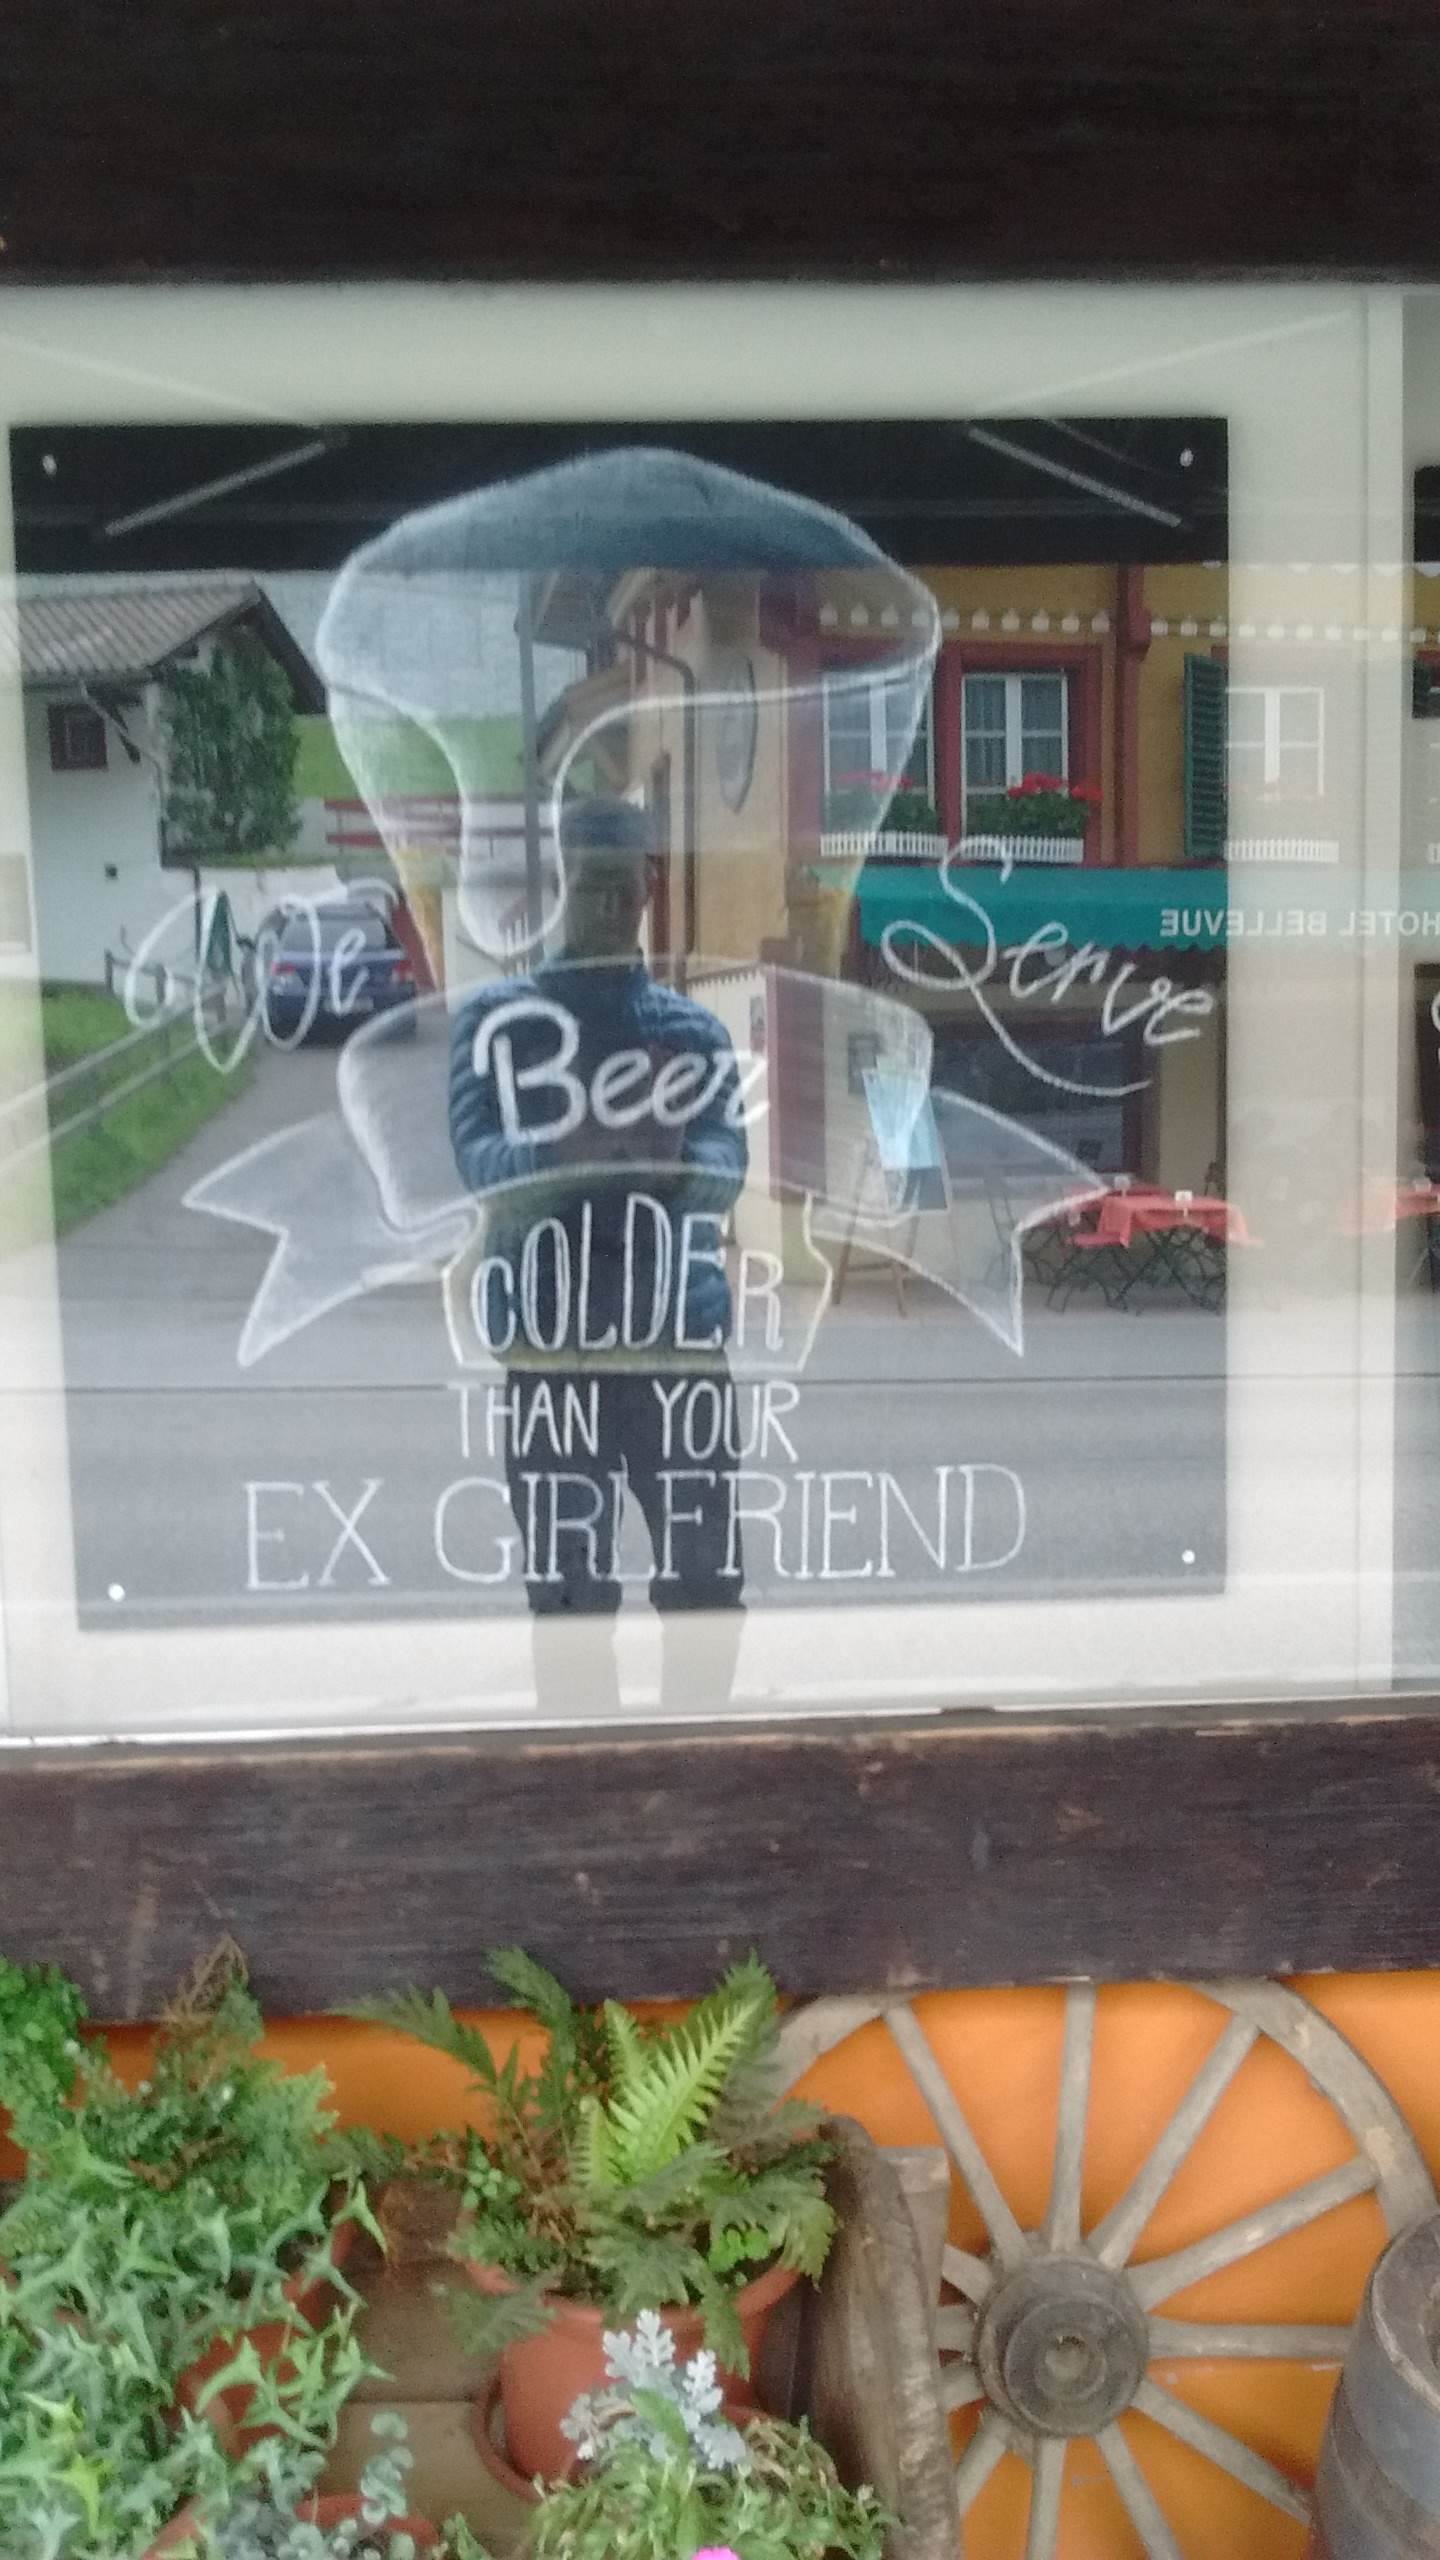 We Serve
Beer
COLDER
THAN YOUR
EX GIRLFRIEND
HOTEL BELLEVUE